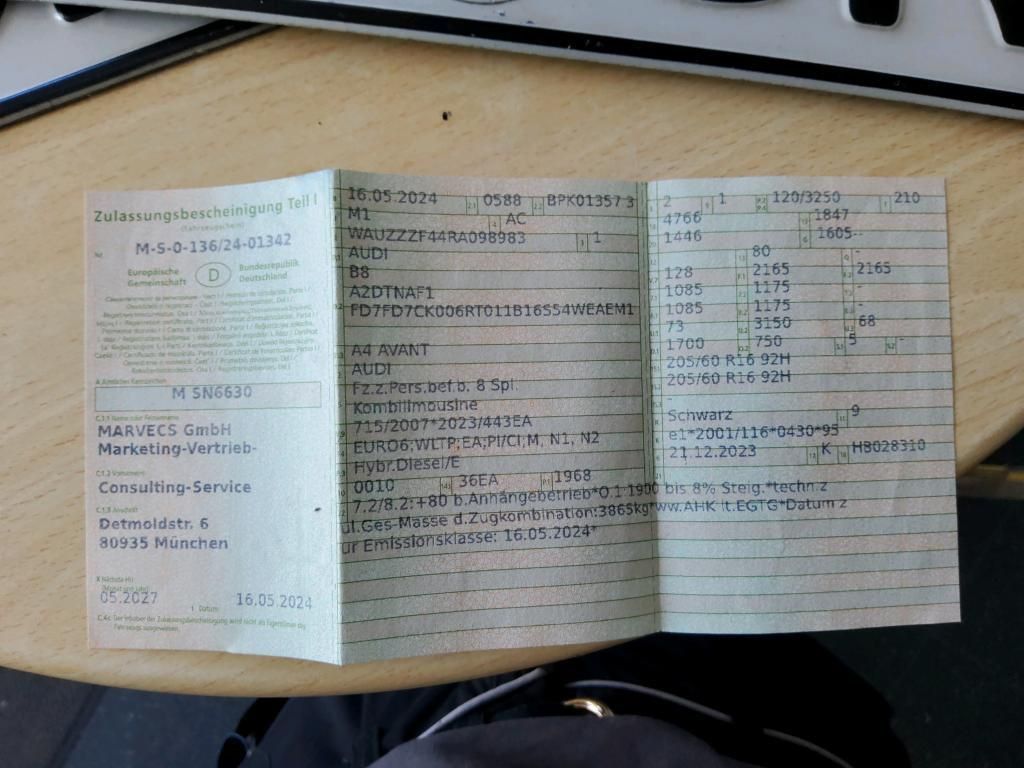 Zulassungsbescheinigung Teil I
(Fahrzeugschein)
Nr. M-S-0-136/24-01342
Europäische Gemeinschaft
D
Bundesrepublik Deutschland
A Amtliches Kennzeichen
M SN6630
C.1.1 Name oder Firmenname
MARVECS GmbH
Marketing-Vertrieb-
C.1.2 Vorname(n)
Consulting-Service
C.1.3 Anschrift
Detmoldstr. 6
80935 München
X Nächste HU
(Monat und Jahr)
05.2027
I Datum 16.05.2024
C.4c Der Inhaber der Zulassungsbescheinigung wird nicht als Eigentümer des Fahrzeugs ausgewiesen.
16.05.2024 2.1 0588 2.2 BPK01357 3
M1 4 AC
WAUZZZF44RA098983 3 1
AUDI
B8
A2DTNAF1
FD7FD7CK006RT011B16S54WEAEM1
A4 AVANT
AUDI
Fz.z.Pers.bef.b. 8 Spl.
Kombilimousine
715/2007*2023/443EA
EURO6;WLTP;EA;PI/CI;M, N1, N2
Hybr.Diesel/E
0010 36EA P.1 1968
7.2/8.2:+80 b.Anhängebetrieb*O.1:1900 bis 8% Steig.*techn.z
ul.Ges-Masse d.Zugkombination:3865kg*ww.AHK lt.EGTG*Datum z
ur Emissionsklasse: 16.05.2024*
2 9 1 P.2 P.4 120/3250 T 210
4766 1847
1446 G 1605--
13 80 Q -
128 F.1 2165 F.2 2165
1085 1175 -
1085 1175 -
73 3150 68
1700 750 S.1 5 S.2 -
205/60 R16 92H
205/60 R16 92H
-
Schwarz 11 9
e1*2001/116*0430*95
21.12.2023 17 K 16 HB028310